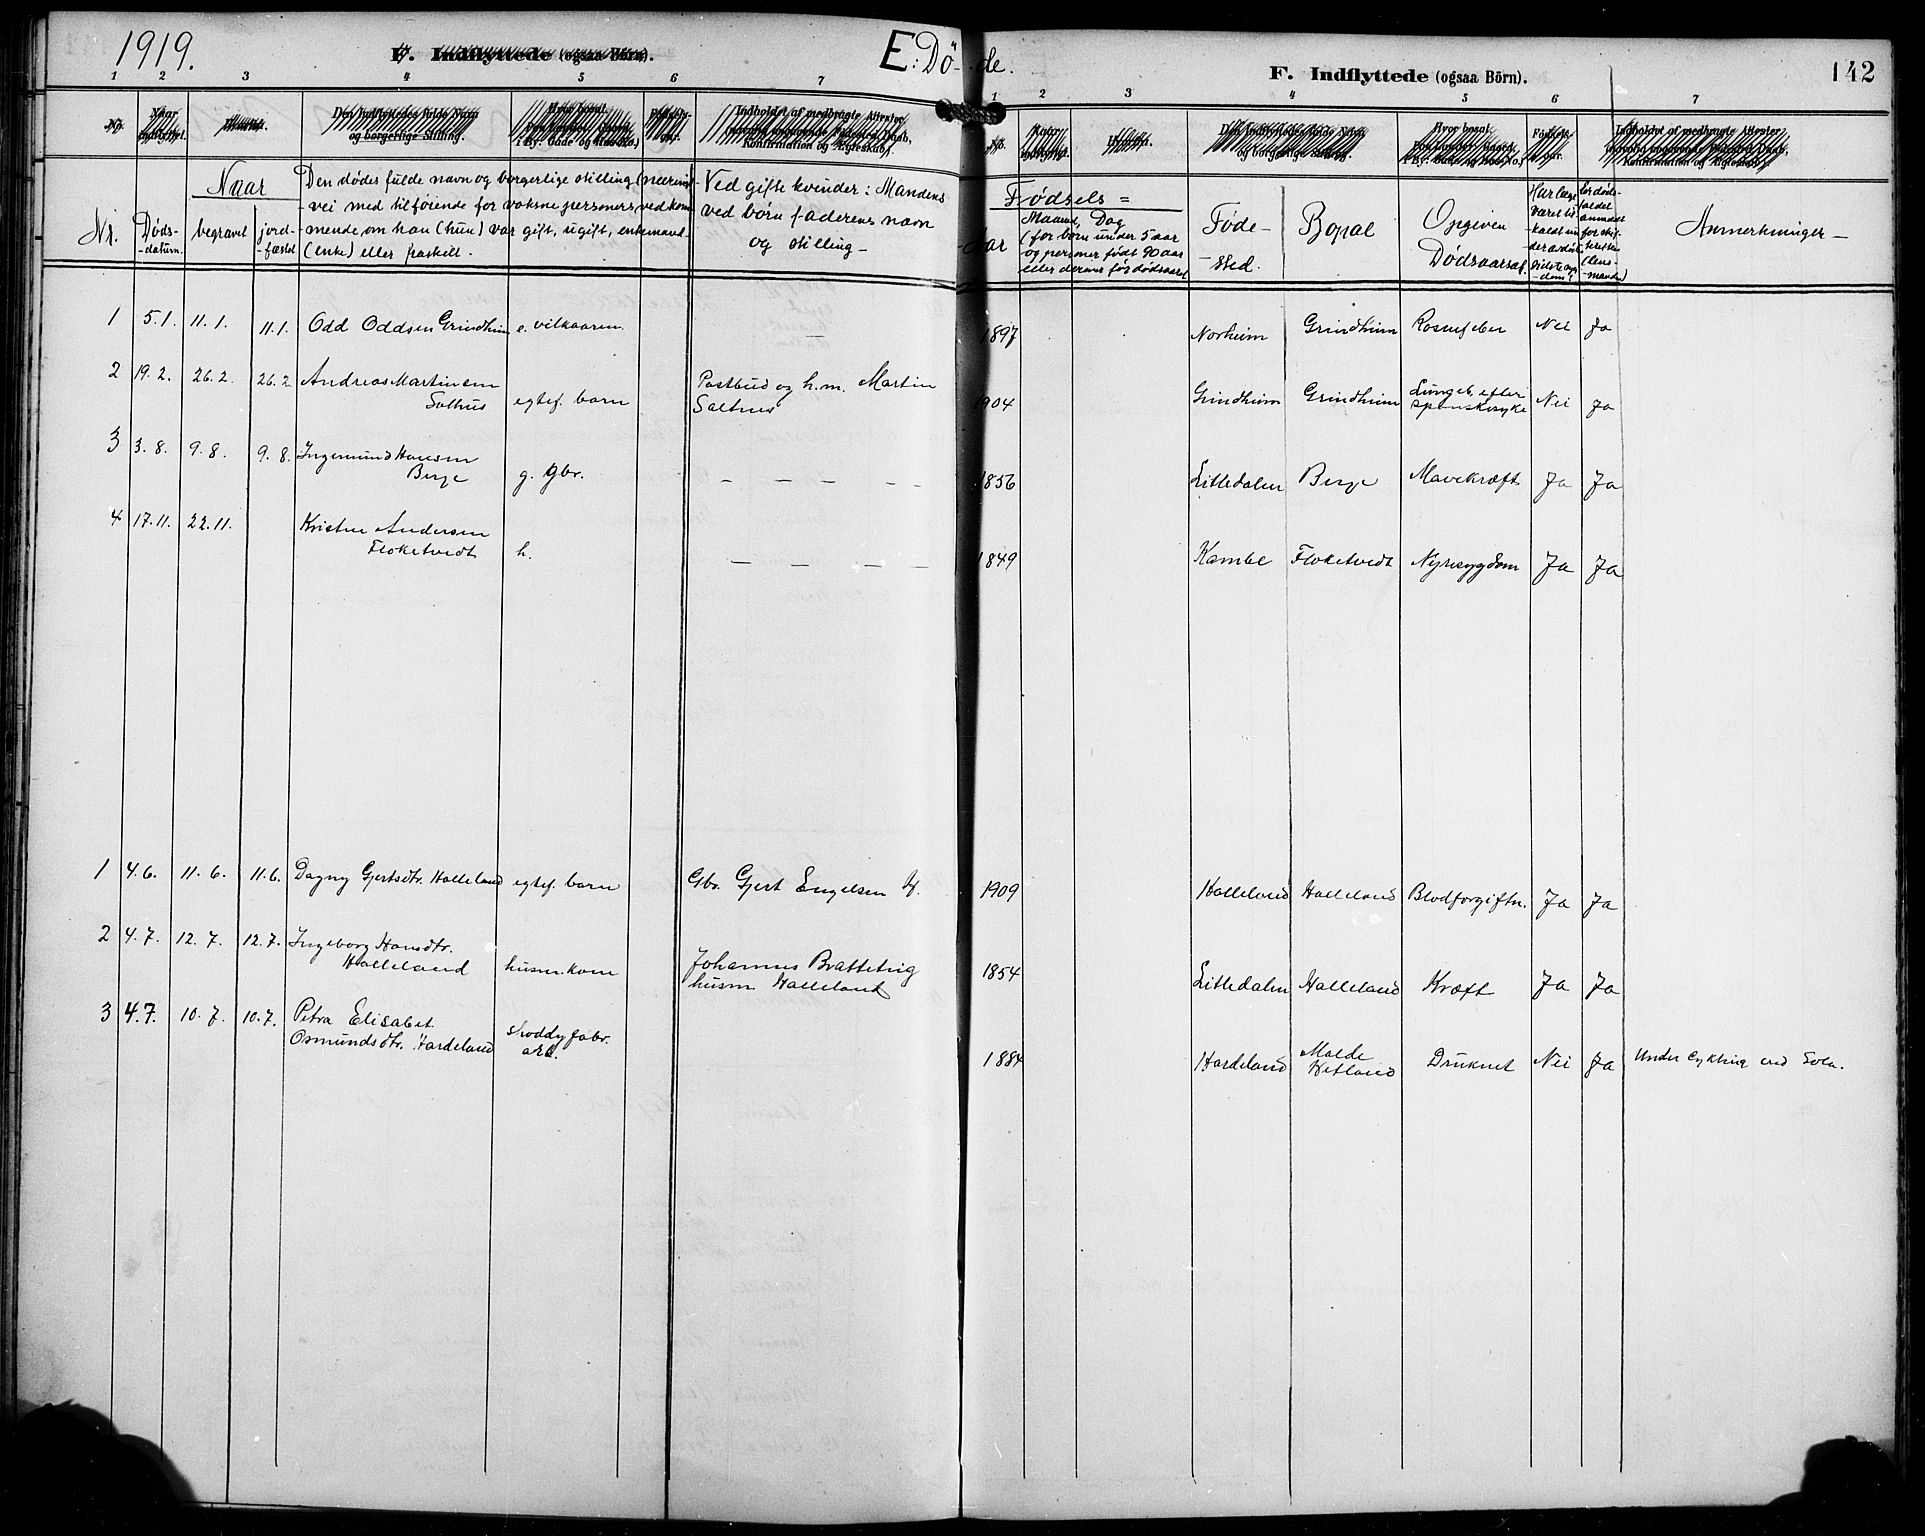 1919.
F. Indflyttede (ogsaa Börn).
E: Dö- -de.
F. Indflyttede (ogsaa Börn).
142
1 2 3 4 5 6 7
1 2 3 4 5 6 7
No. Naar indflyttet. Hvorfra. Den Indflyttedes fulde Navn og borgerlige Stilling. Hvor bosat i By: Gade og Hus No.) Fødsels- aar. Indholdet af medbragte Attester Konfirmation og Ægteskab.
Nr. Døds- -datum. Naar begravet jord- -fæstet
Den dødes fulde navn og borgerlige stilling (nærings-
-vei med tilføiende for voksne personers vedkom-
mende, om han (hun) var gift, ugift, enkemand
(enke) eller fraskilt.
Ved gifte kvinder: Mandens
ved børn faderens navn
og stilling-
Fødsels =
Aar
Maaned, Dag
(for børn under 5 aar
og personer født 90 aar
eller derover før dødsaaret
Føde-
-sted.
Bopæl
Opgiven
Dødsaarsak
Har læge
været til-
kaldt un-
der
Er døds-
faldet
anmeldt
for skif-
teretten
(lens-
manden)
Anmerkninger-
1 5.1. 11.1. 11.1. Odd Oddsen Grindheim e. vilkaarm. — 1897 Norheim Grindheim Nei Ja
2 19.2. 26.2. 26.2 Andreas Martinsen
Salthus egtef. barn Postbud og h.m. Martin
Saltnes 1904 Grindheim Grindheim Lungeb. efter
spanskesyke Nei Ja
3 3.8. 9.8. 9.8. Ingemund Hansen
Berge g. gbr. — — — — — 1856 Litledalen Berge Mavekræft Ja Ja
4 17.11. 22.11. Kristen Andersen
Floketvedt h. — — — — 1849 Kambe Floketvedt Nyresygdom Ja Ja
1 4.6. 11.6. 11.6. Dagny Gjertsdtr. Halleland egtef. barn Gbr. Gjert Engelsen H. 1909 Halleland Halleland Blodforgiftn. Ja Ja
2 4.7. 12.7. 12.7. Ingeborg Hansdtr.
Halleland husm. kone Johannes Bratteteig
husm Halleland 1854 Litledalen Halleland Kræft Ja Ja
3 4.7. 10.7. 10.7. Petra Elisabet
Osmundsdtr. Hardeland shoddyfabr.
arb. 1884 Hardeland Malde
Hetland Druknet Nei Ja Under Cykling ved Sola.